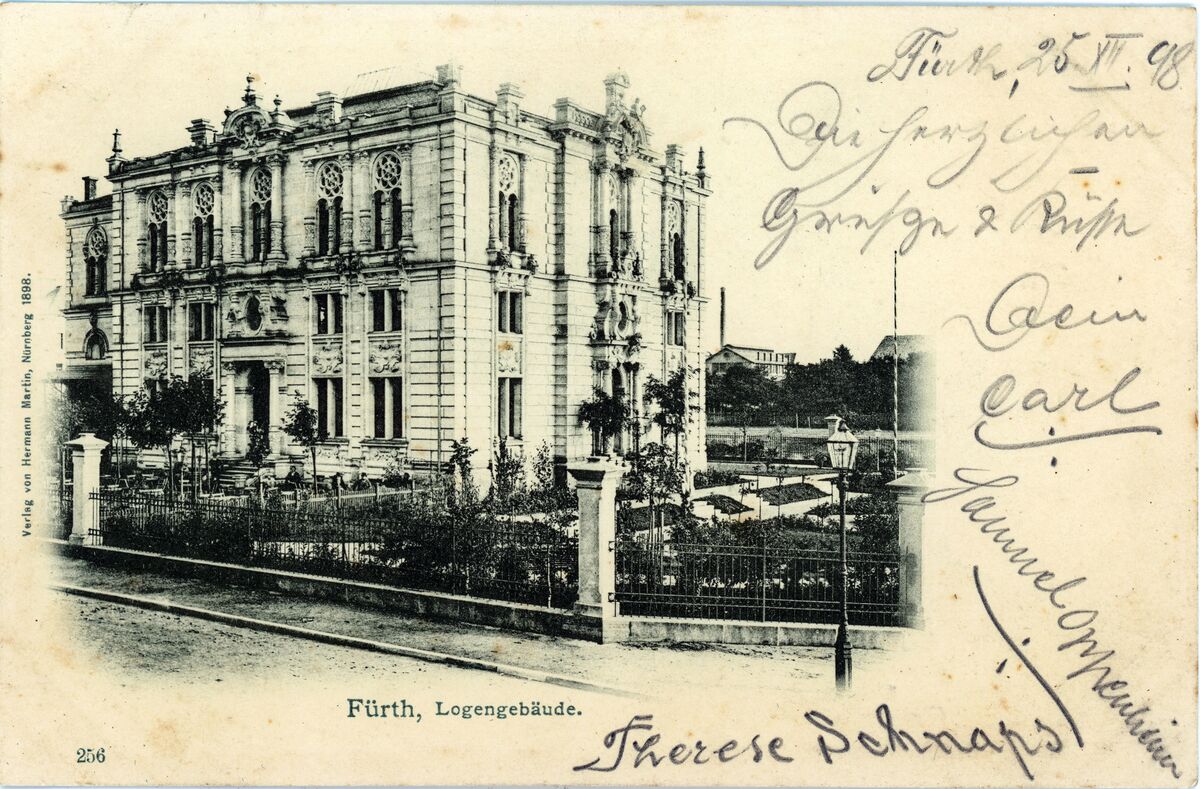 Fürth, 25 XII. 98
Die herzlichen
Grüße & Küsse
Dein
Carl
Sammuel Oppenheimer
Therese Schnaps
Fürth, Logengebäude.
256
Verlag von Hermann Martin, Nürnberg 1898.